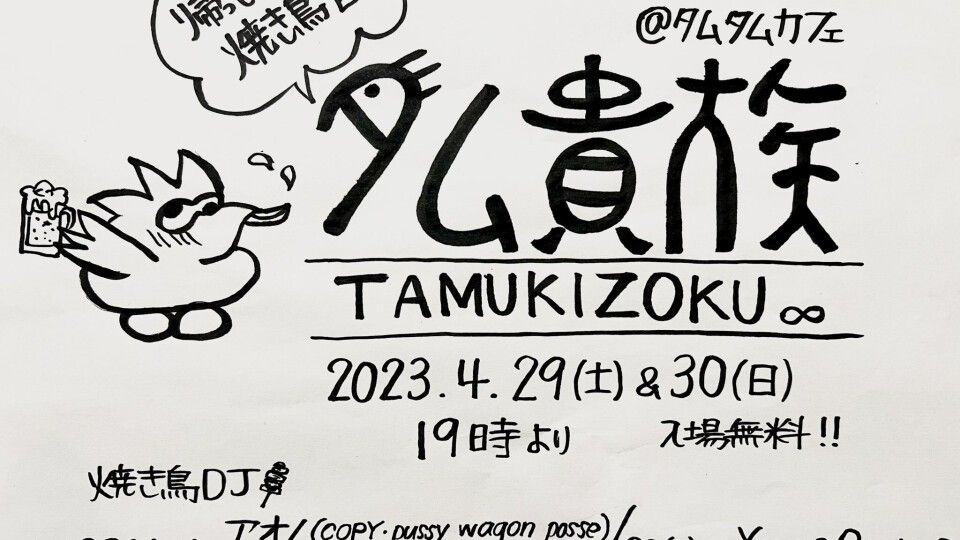 @タムタムカフェ
焼き鳥
タム貴族
TAMUKIZOKU∞
2023.4.29(土)&30(日)
19時より 入場無料!!
焼き鳥DJ
アオノ(COPY・pussy wagon posse)/